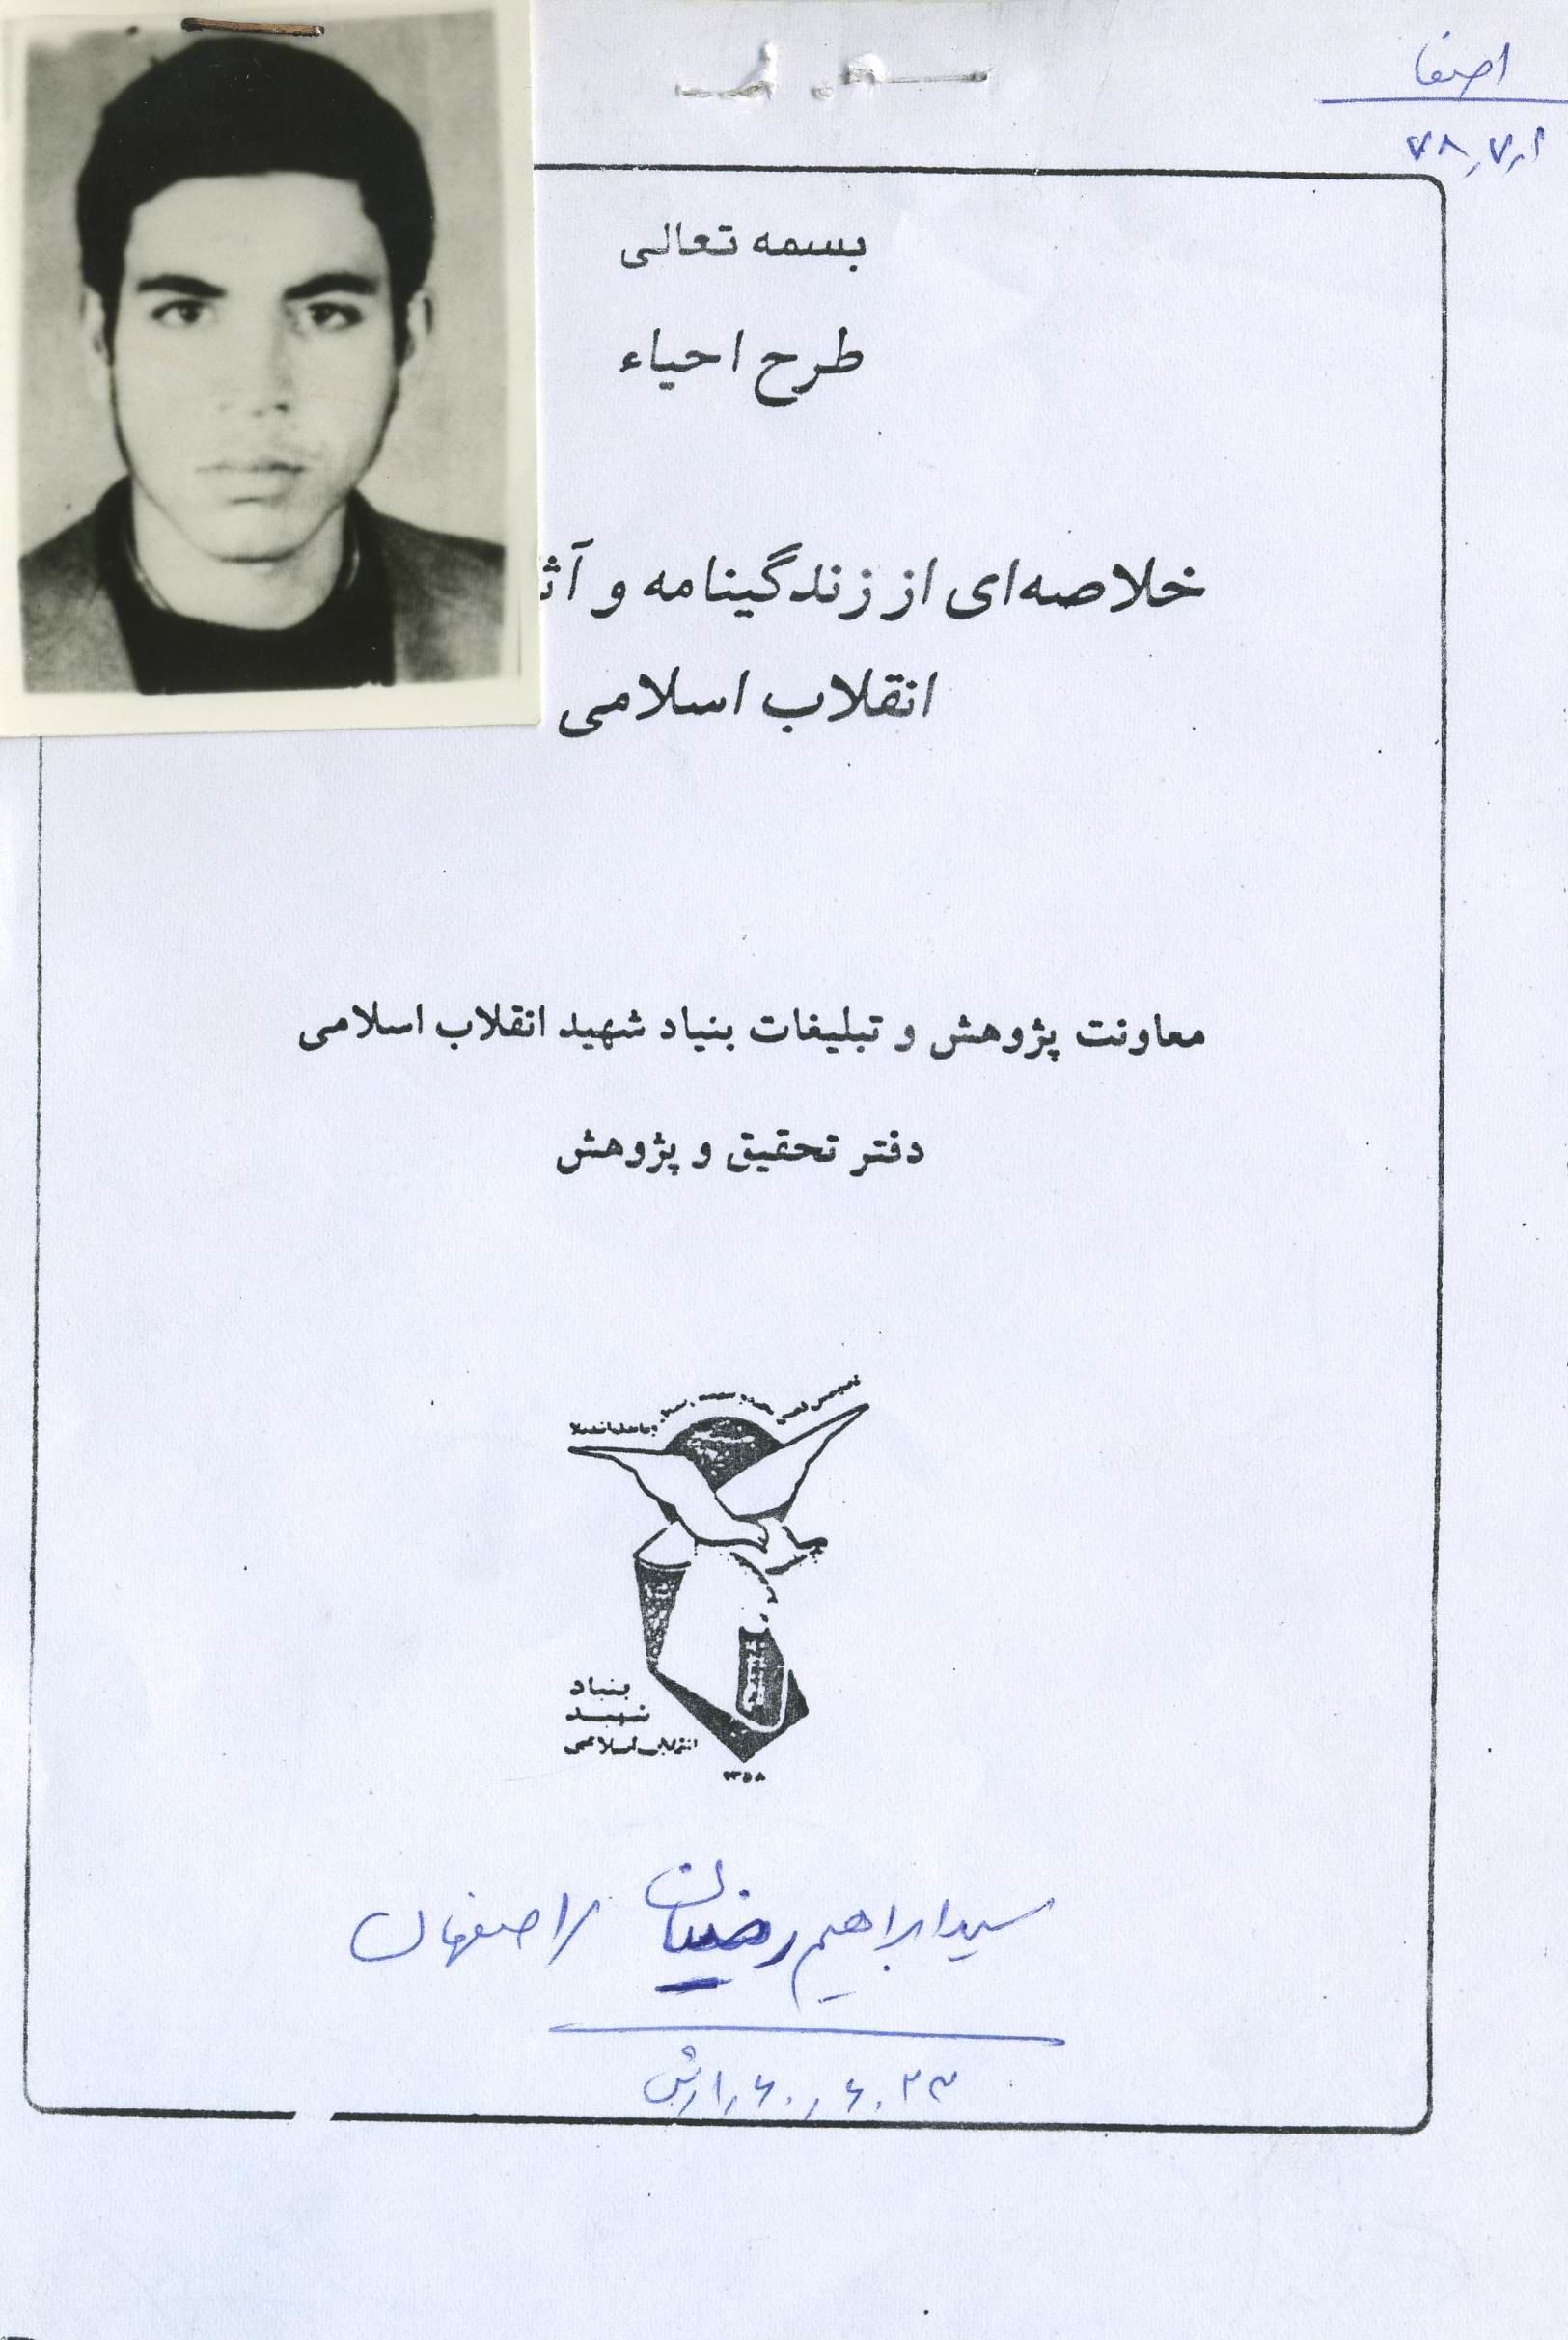 اصفا
۷۸٫۷٫۱
بسمه تعالی
طرح احیاء
خلاصه‌ای از زندگینامه و آث
انقلاب اسلامی
معاونت پژوهش و تبلیغات بنیاد شهید انقلاب اسلامی
دفتر تحقیق و پژوهش
بنیاد
شهید
انقلاب اسلامی
۱۳۵۸
سید ابراهیم رضیان / اصفهان